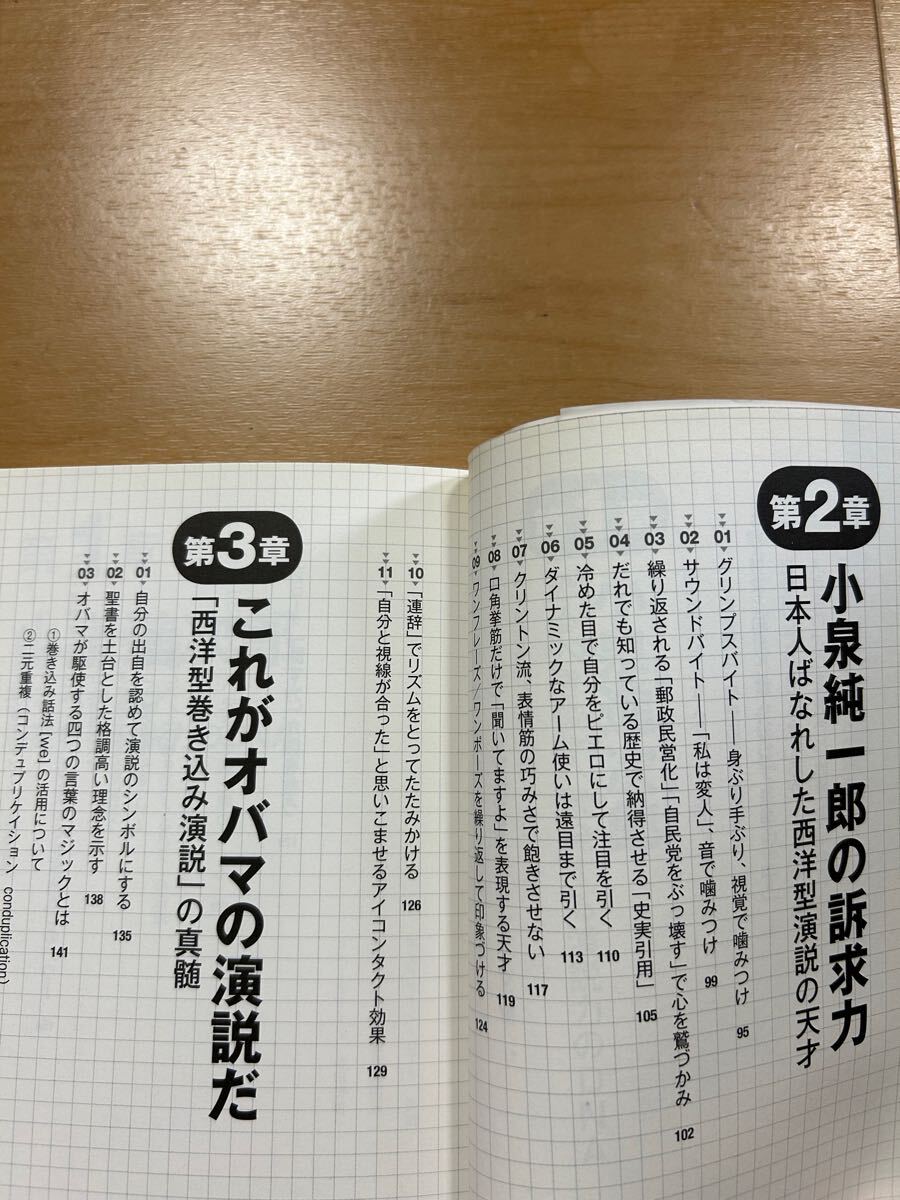 第2章
小泉純一郎の訴求力
日本人ばなれした西洋型演説の天才
01 グリンプスバイト――身ぶり手ぶり、視覚で噛みつけ 95
02 サウンドバイト――「私は変人」、音で噛みつけ 99
03 繰り返される「郵政民営化」「自民党をぶっ壊す」で心を鷲づかみ 102
04 だれでも知っている歴史で納得させる「史実引用」 105
05 冷めた目で自分をピエロにして注目を引く 110
06 ダイナミックなアーム使いは遠目まで引く 113
07 クリントン流、表情筋の巧みさで飽きさせない 117
08 口角挙筋だけで「聞いてますよ」を表現する天才 119
09 ワンフレーズ/ワンポーズを繰り返して印象づける 124
10 「連辞」でリズムをとってたたみかける 126
11 「自分と視線が合った」と思いこませるアイコンタクト効果 129
第3章
これがオバマの演説だ
「西洋型巻き込み演説」の真髄
01 自分の出自を認めて演説のシンボルにする 135
02 聖書を土台とした格調高い理念を示す 138
03 オバマが駆使する四つの言葉のマジックとは 141
①巻き込み話法【we】の活用について
②二元重複(コンデュプリケイション conduplication)